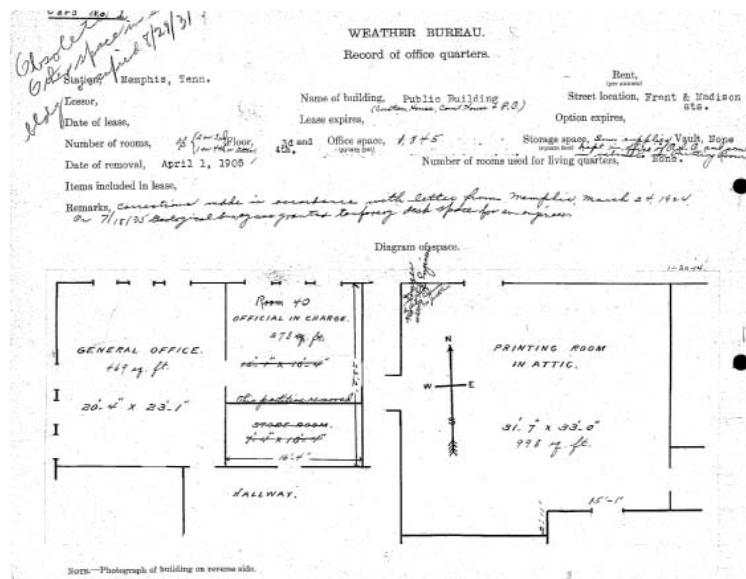 Card No. 1
Obsolete
Other space in
bldg occupied 8/28/31
WEATHER BUREAU.
Record of office quarters.
Station, Memphis, Tenn.
Rent,
(per annum)
Lessor,
Name of building, Public Building
(Custom House, Court House & P.O.)
Street location, Front & Madison
sts.
Date of lease,
Lease expires,
Option expires,
Number of rooms, Floor, 3d and
4th. Office space, 1,845
(square feet)
Storage space, Vault, None
(square feet)
Date of removal, April 1, 1905
Number of rooms used for living quarters, None.
Items included in lease,
Remarks, Corrections made in accordance with letter from Memphis, March 24, 1924
On 7/18/35 Geological Survey was granted temporary desk space for an engineer
Diagram of space.
1-20-14
Room 40
OFFICIAL IN CHARGE.
273 sq. ft.
16'-4"
GENERAL OFFICE.
469 sq. ft.
20'-4" X 23'-1"
this partition removed
STORE ROOM.
16'-4"
HALLWAY.
N
W E
S
PRINTING ROOM
IN ATTIC.
31'-7" X 33'-0"
998 sq. ft.
15'-1"
NOTE.—Photograph of building on reverse side.